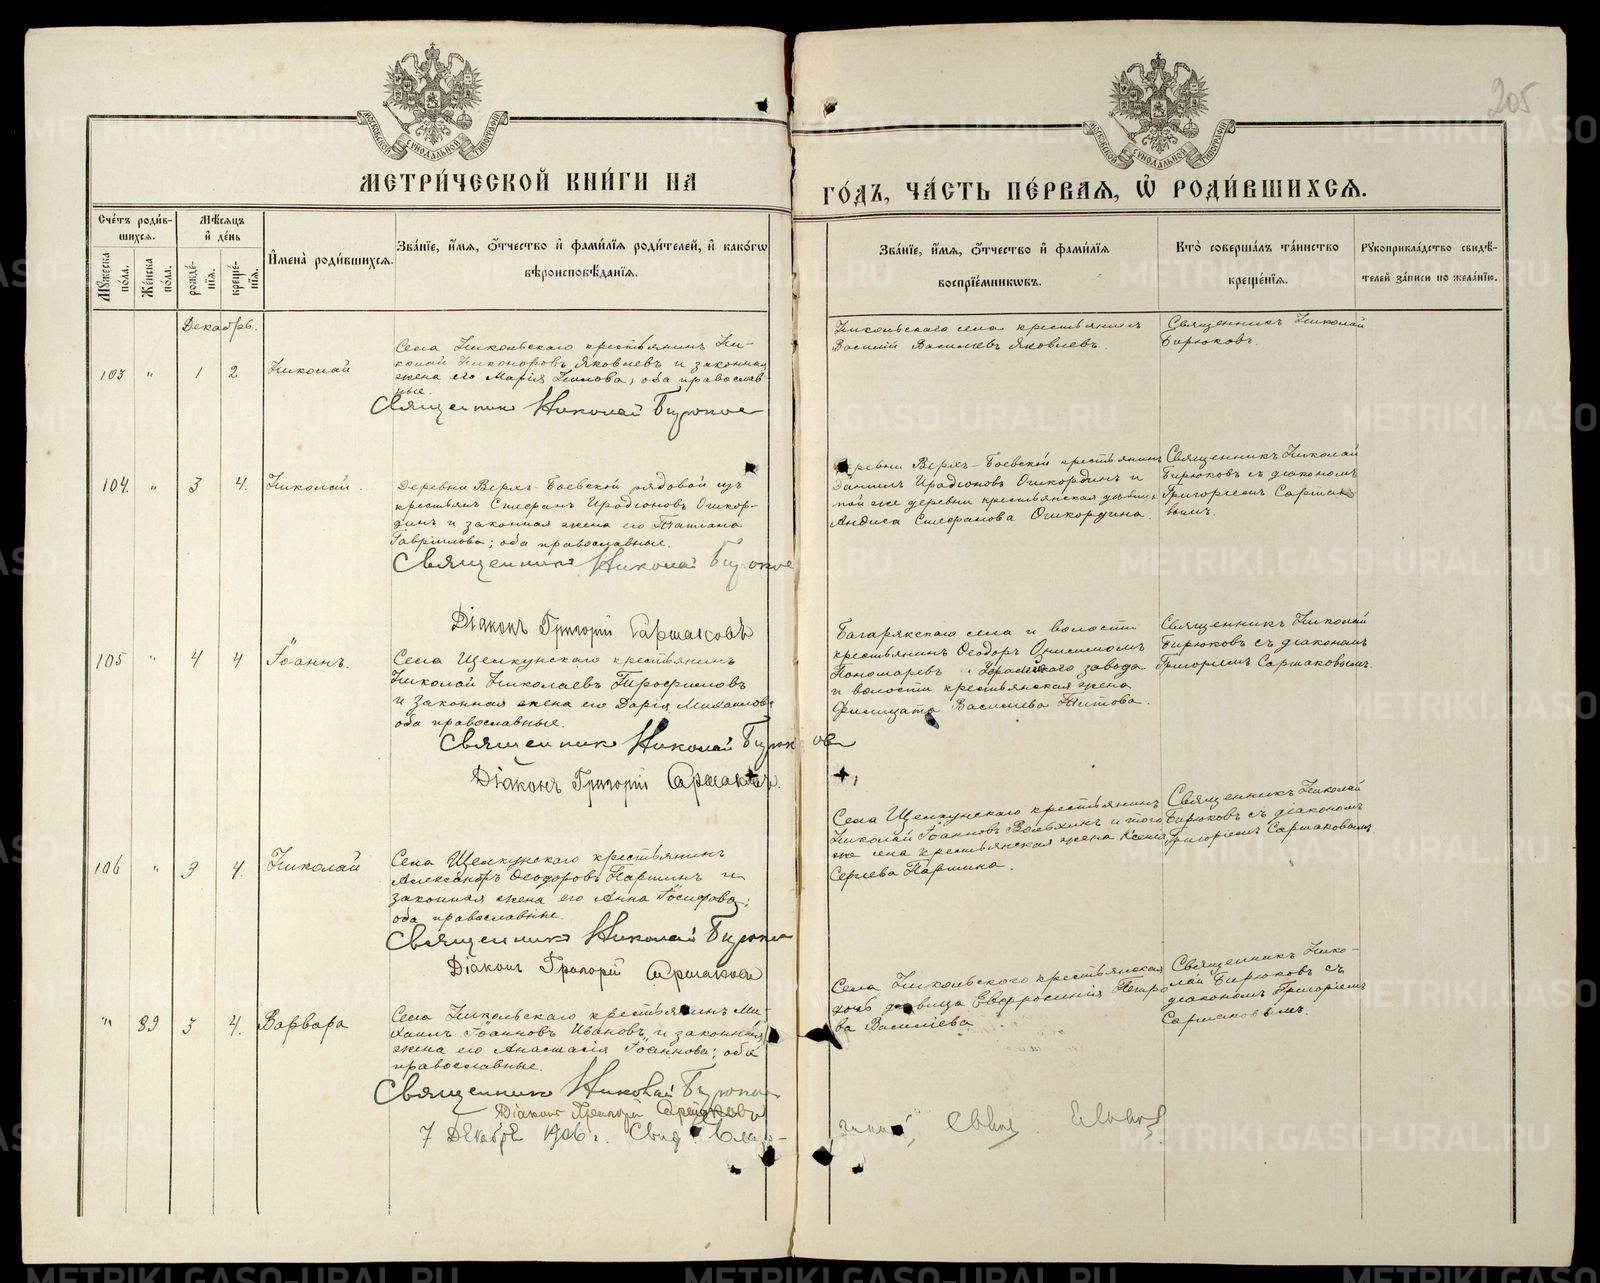 205
МОСКОВСКОЙ СѴНОДАЛЬНОЙ ТИПОГРАФІИ
МОСКОВСКОЙ СѴНОДАЛЬНОЙ ТИПОГРАФІИ
МЕТРИ́ЧЕСКОЙ КНИ́ГИ НА
ГО́ДЪ, ЧА́СТЬ ПЕ́РВАЯ, Ѽ РОДИ́ВШИХСЯ.
Сче́тъ роди́в-
шихся.
Мѣ́сяцъ
и҆ де́нь
Мꙋ́жеска по́ла.
Же́нска по́ла.
рожде́нїя.
креще́нїя.
И҆мена̀ роди́вшихся.
Зва́нїе, и҆́мя, ѻ҆́тчество и҆ фами́лїя роди́телей, и҆ како́гѡ
вѣроисповѣ́данїя.
Зва́нїе, и҆́мя, ѻ҆́тчество и҆ фами́лїя
воспрїе́мниковъ.
Кто̀ соверша́лъ та́инство
креще́нїя.
Рꙋкоприкла́дство свидѣ́-
телей за́писи по жела́нїю.
Декабрь.
103 " 1 2 Николай
Села Никольскаго крестьянинъ Ни-
колай Никоноровъ Яковлевъ и законная
жена его Марія Нилова; оба православ-
ные.
Священникъ Николай Бирюков
Никольскаго села крестьянинъ
Василій Васильевъ Яковлевъ.
Священникъ Николай
Бирюковъ.
104. " 3 4. Николай.
Деревни Верхъ-Боевской рядовой изъ
крестьянъ Стефанъ Иродіоновъ Ошкор-
динъ и законная жена его Татіана
Гавріилова; оба православные.
Священникъ Николай Бирюков
Діаконъ Григорій Саршаковъ
Деревни Верхъ-Боевской крестьянинъ
Даніилъ Иродіоновъ Ошкординъ и
той же деревни крестьянская девица
Анфиса Стефанова Ошкордина.
Священникъ Николай
Бирюковъ съ діакономъ
Григоріемъ Саршако
вымъ.
105 " 4 4 Іоаннъ.
Села Щелкунскаго крестьянинъ
Николай Николаевъ Трофимовъ
и законная жена его Дарія Михаилова
оба православные.
Священникъ Николай Бирюков
Діаконъ Григорій Саршаковъ.
Багарякскаго села и волости
крестьянинъ Ѳеодоръ Онисимовъ
Пономаревъ и завода
и волости крестьянская жена
Филицата Васильева Титова.
Священникъ Николай
Бирюковъ съ діакономъ
Григоріемъ Саршаковымъ.
106 " 3 4. Николай
Села Щелкунскаго крестьянинъ
Александръ Ѳеодоровъ Паршинъ и
законная жена его Анна Іосифова;
оба православные.
Священникъ Николай Бирюков
Діаконъ Григорій Саршаковъ
Села Щелкунскаго крестьянинъ
Николай Іоанновъ и того
же села крестьянская жена Ксенія
Сергіева Паршина.
Священникъ Николай
Бирюковъ съ діакономъ
Григоріемъ Саршаковымъ
" 89 3 4. Варвара
Села Никольскаго крестьянинъ Ми-
хаилъ Іоанновъ Ивановъ и законная
жена его Анастасія Іоаннова; оба
православные.
Священникъ Николай Бирюков
Діаконъ Григорій Саршаковъ
Села Никольскаго крестьянская
дочь девица Евфросинія Петро
ва Васильева
Священникъ Нико-
лай Бирюковъ съ
діакономъ Григоріемъ
Саршаковымъ.
7 Декабря 1906 г.
METRIKI.GASO-URAL.RU